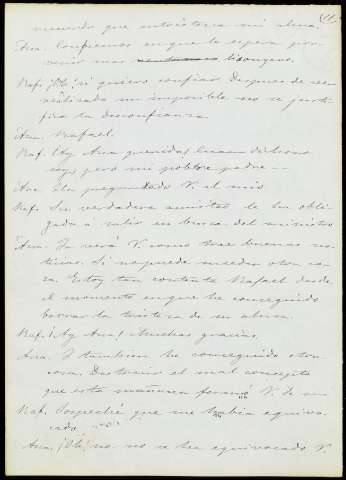 11
recuerdo que entristezca mi alma.
Ana. Confiemos en que le espera porvenir mas lisongero.
Raf. ¡Oh! si quiero confiar. Despues de ver
realizado un imposible no se justifica
la desconfianza.
Ana. Rafael.
Raf. ¡Ay Ana querida! Cuan dichoso
soy, pero mi pobre padre --
Ana Ha preguntado V. al mio
Raf. Su verdadera amistad le ha obligado
á salir en busca del ministro
Ana. Ya verá V. como trae buenas noticias.
Si no puede suceder otra cosa.
Estoy tan contenta Rafael desde
el momento en que he conseguido
borrar la tristeza de su alma.
Raf. ¡Ay Ana! Muchas gracias.
Ana. Y tambien he conseguido otra
cosa. Destruir el mal concepto
que esta mañana formó V. de mi
Raf. Sospeché que me habia equivocado.
Ana. ¡Oh! no no se ha equivocado V.